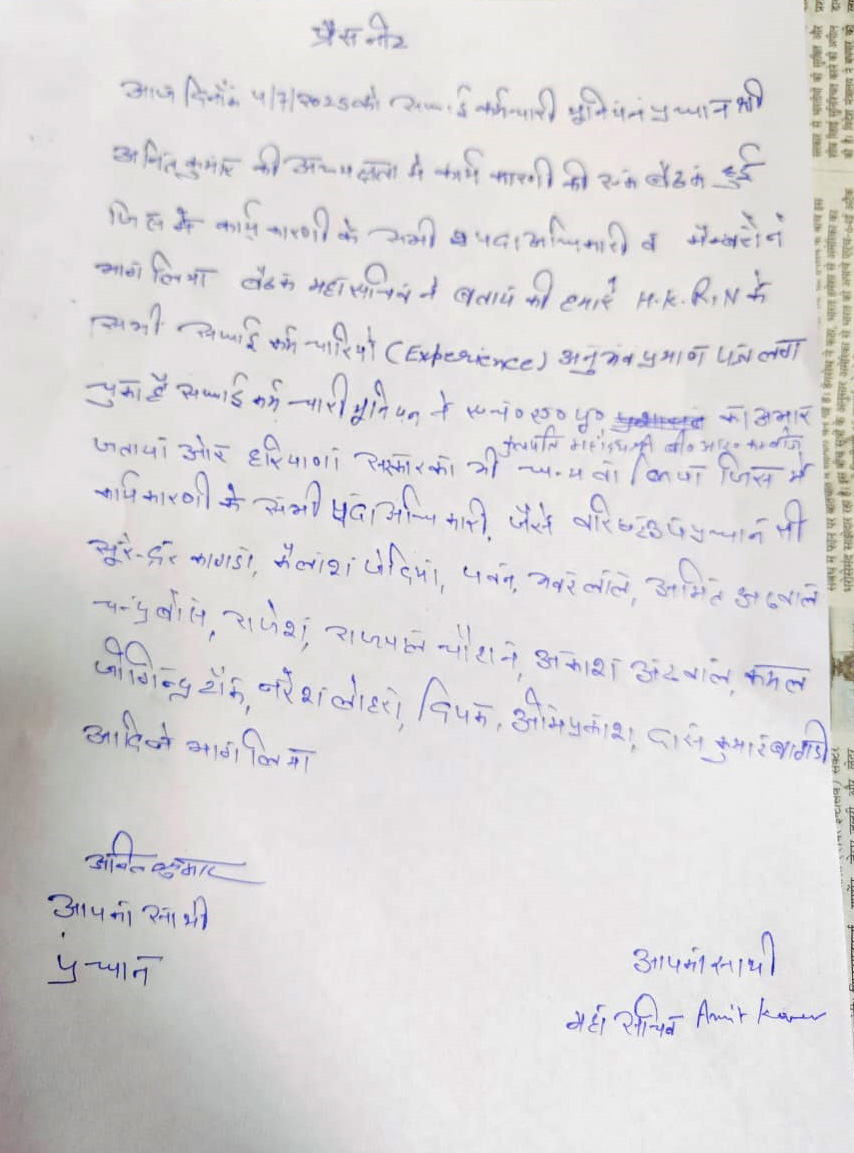 प्रैस नोट
आज दिनाँक 4/7/2025 को सफाई कर्मचारी यूनियन प्रधान श्री
अमित कुमार की अध्यक्षता मे कार्य कारणी की एक बैठक हुई
जिस मे कार्य कारणी के सभी पदाअधिकारी व मैम्बरों ने
भाग लिया बैठक महासचिव ने बताय की हमारे H.K.R.N के
सभी सफाई कर्मचारियो (Experience) अनुभव प्रमाण पत्र लग
चुका है सफाई कर्मचारी यूनियन ने का अभार
कुलपति बी० आर० कम्बोज
जताया और हरियाणा सरकार का भी धन्यवा किया जिस मे
कार्यकारणी के सभी पदाअधिकारी, जैसे वरिष्ठ उपप्रधान श्री
सुरेन्द्र कागडा, कैलाश पवन, अमित अटवाल
चन्द्र बोस, राजेश, राजपाल चौहान, अकाश अटवाल, कमल
जोगिन्द्र टाँक, नरेश लोहरा, दिपक, ओमप्रकाश, कुमार बागडी
आदि ने भाग लिया
अमित कुमार
आपका साथी
प्रधान
आपका साथी
महा सचिव Amit Kumar